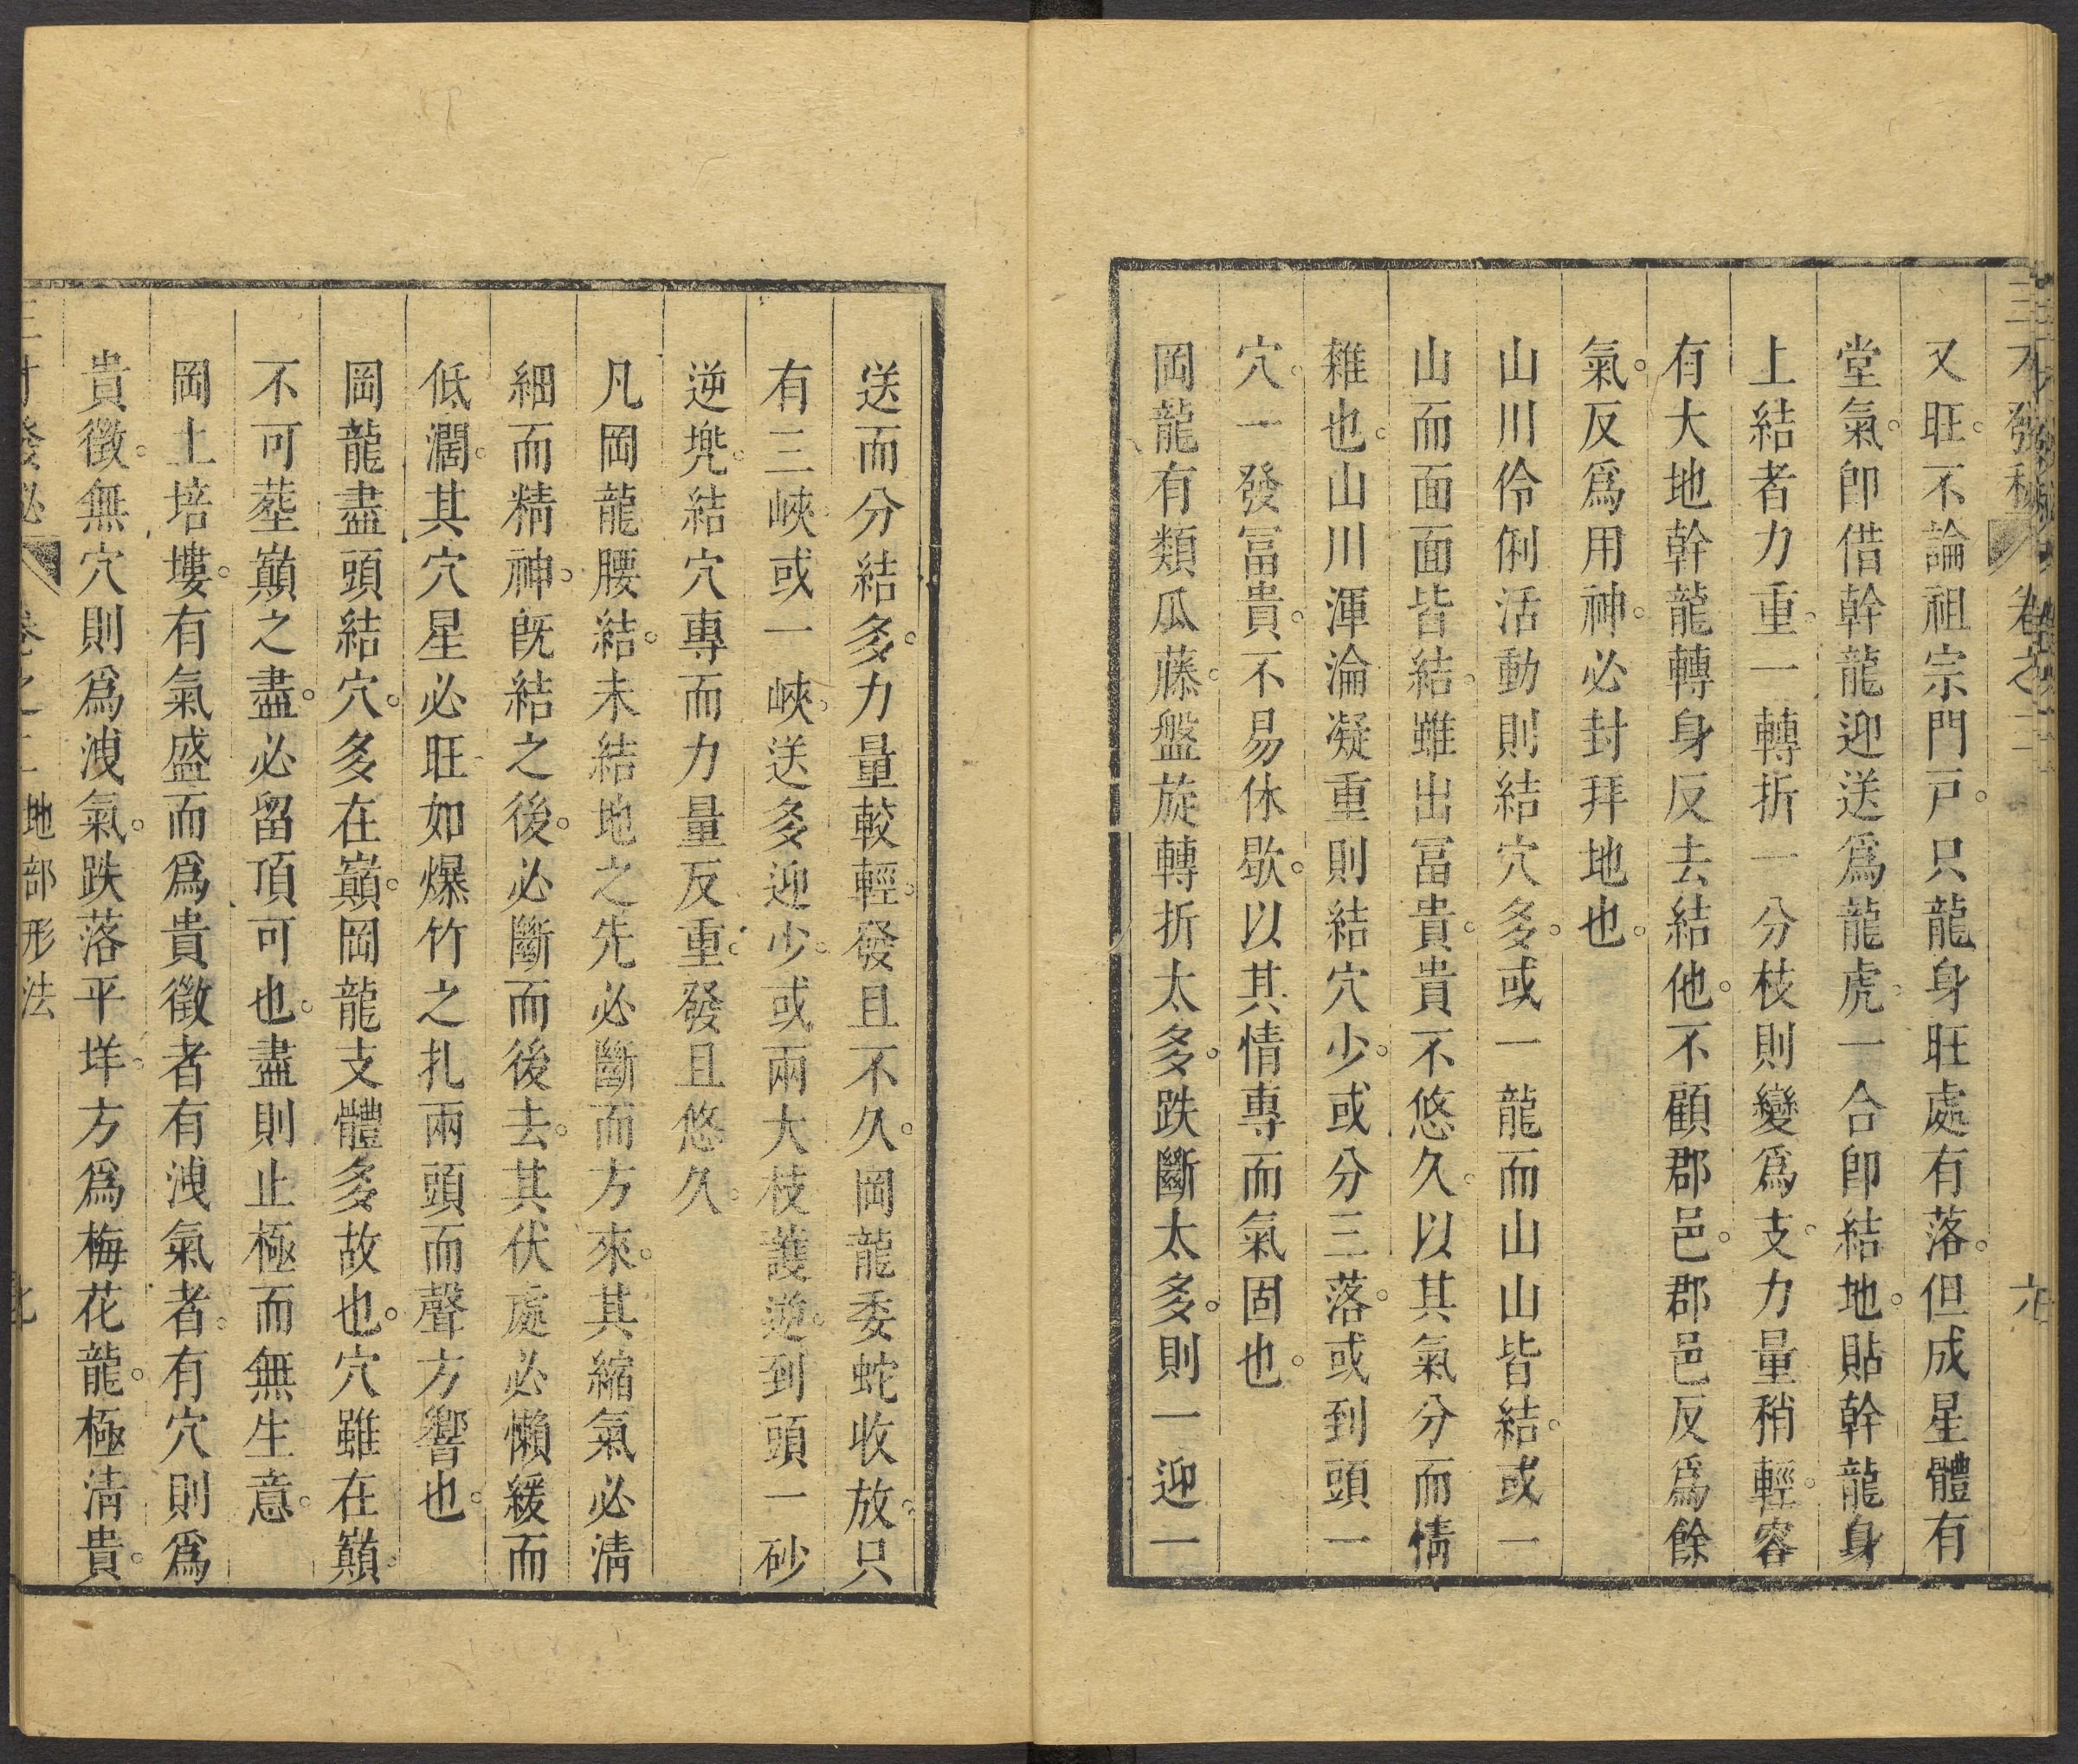 又旺。不論祖宗門戸。只龍身旺處有落。但成星體有
堂氣。卽借幹龍迎送爲龍虎。一合卽結地。貼幹龍身
上結者力重。一轉折一分枝則變爲支。力量稍輕。容
有大地幹龍轉身反去結他。不顧郡邑。郡邑反爲餘
氣。反爲用神。必封拜地也。
山川伶俐活動則結穴多。或一龍而山山皆結。或一
山而面面皆結。雖出冨貴。貴不悠久。以其氣分而情
雜也。山川渾淪凝重則結穴少。或分三落。或到頭一
穴。一發冨貴。不易休歇。以其情專而氣固也。
岡龍有類瓜藤。盤旋轉折太多。跌斷太多。則一迎一
送而分結多。力量較輕。發且不久。岡龍委蛇收放。只
有三峽。或一峽。送多迎少。或兩大枝護遊。到頭一砂
逆兠。結穴專而力量反重。發且悠久。
凡岡龍腰結。未結地之先必斷而方來。其縮氣必淸
細而精神。旣結之後。必斷而後去。其伏處必懶緩而
低濶。其穴星必旺。如爆竹之扎兩頭而聲方響也。
岡龍盡頭結穴。多在巓。岡龍支體多故也。穴雖在巓。
不可塟巓之盡。必留頂可也。盡則止極而無生意。
岡土培塿。有氣盛而爲貴徵者有洩氣者。有穴則爲
貴徵。無穴則爲洩氣。跌落平垟。方爲梅花龍。極淸貴。
三才發秘 卷之二 地部形法